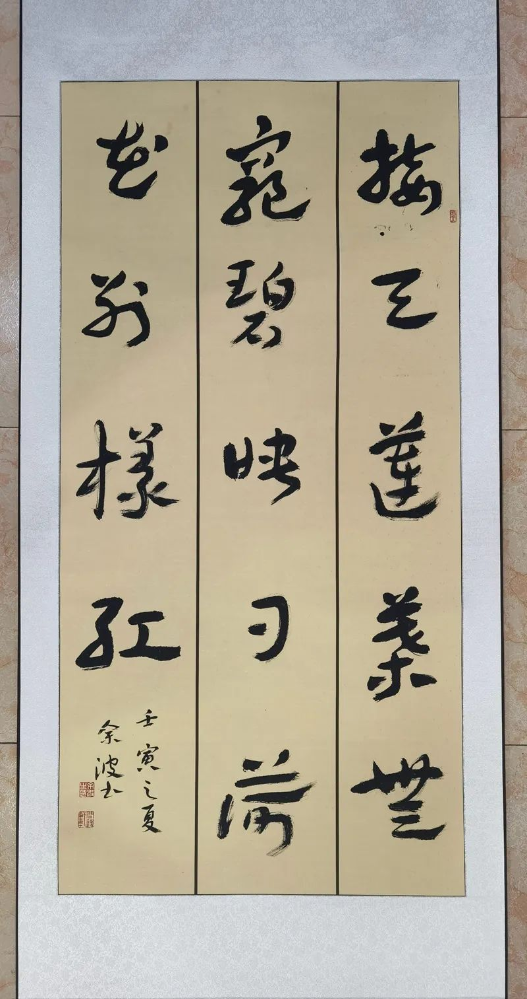 接天莲葉無
窮碧映日荷
花别樣红
壬寅之夏
余波书